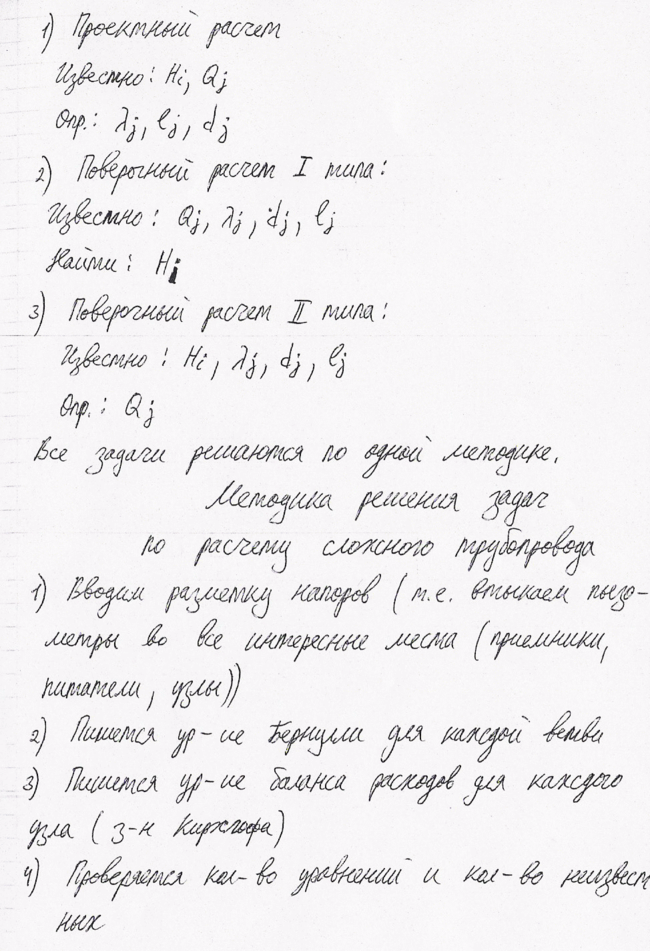 1) Проектный расчет
Известно: Hi, Qj
Опр.: λj, lj, dj
2) Поверочный расчет I типа:
Известно: Qj, λj, dj, lj
Найти: Hi
3) Поверочный расчет II типа:
Известно: Hi, λj, dj, lj
Опр.: Qj
Все задачи решаются по одной методике.
Методика решения задач
по расчету сложного трубопровода
1) Вводим разметку напоров (т.е. втыкаем пьезо-
метры во все интересные места (приемники,
питатели, узлы))
2) Пишется ур-ие Бернулли для каждой ветви
3) Пишется ур-ие баланса расходов для каждого
узла (з-н Кирхгофа)
4) Проверяется кол-во уравнений и кол-во неизвест
ных